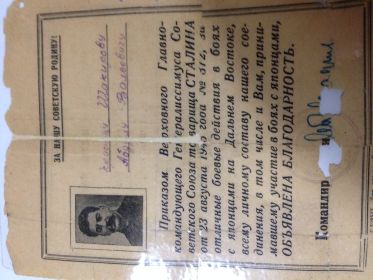 ЗА НАШУ СОВЕТСКУЮ РОДИНУ!
Шакирову
Абдулу Валеевичу
Приказом Верховного Главно-
командующего Генералиссимуса Со-
ветского Союза товарища СТАЛИНА
от 23 августа 1945 года № 372, за
отличные боевые действия в боях
с японцами на Дальнем Востоке,
всему личному составу нашего сое-
динения, в том числе и Вам, прини-
мавшему участие в боях с японцами,
ОБЪЯВЛЕНА БЛАГОДАРНОСТЬ.
Командир